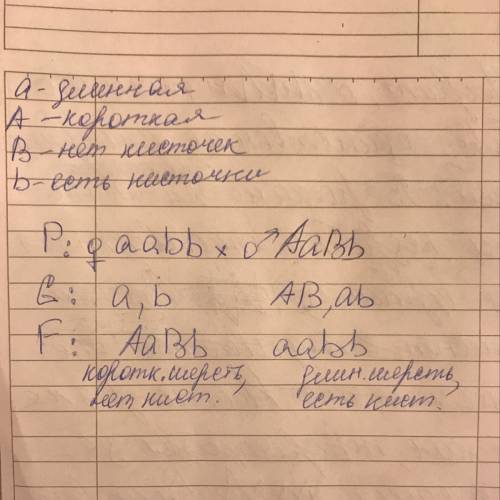 a - длинная
A - короткая
B - нет кисточек
b - есть кисточки
P: ♀ aabb × ♂ AaBb
G: a, b AB, ab
F: AaBb aabb
коротк. шерсть, длин. шерсть,
нет кист. есть кист.